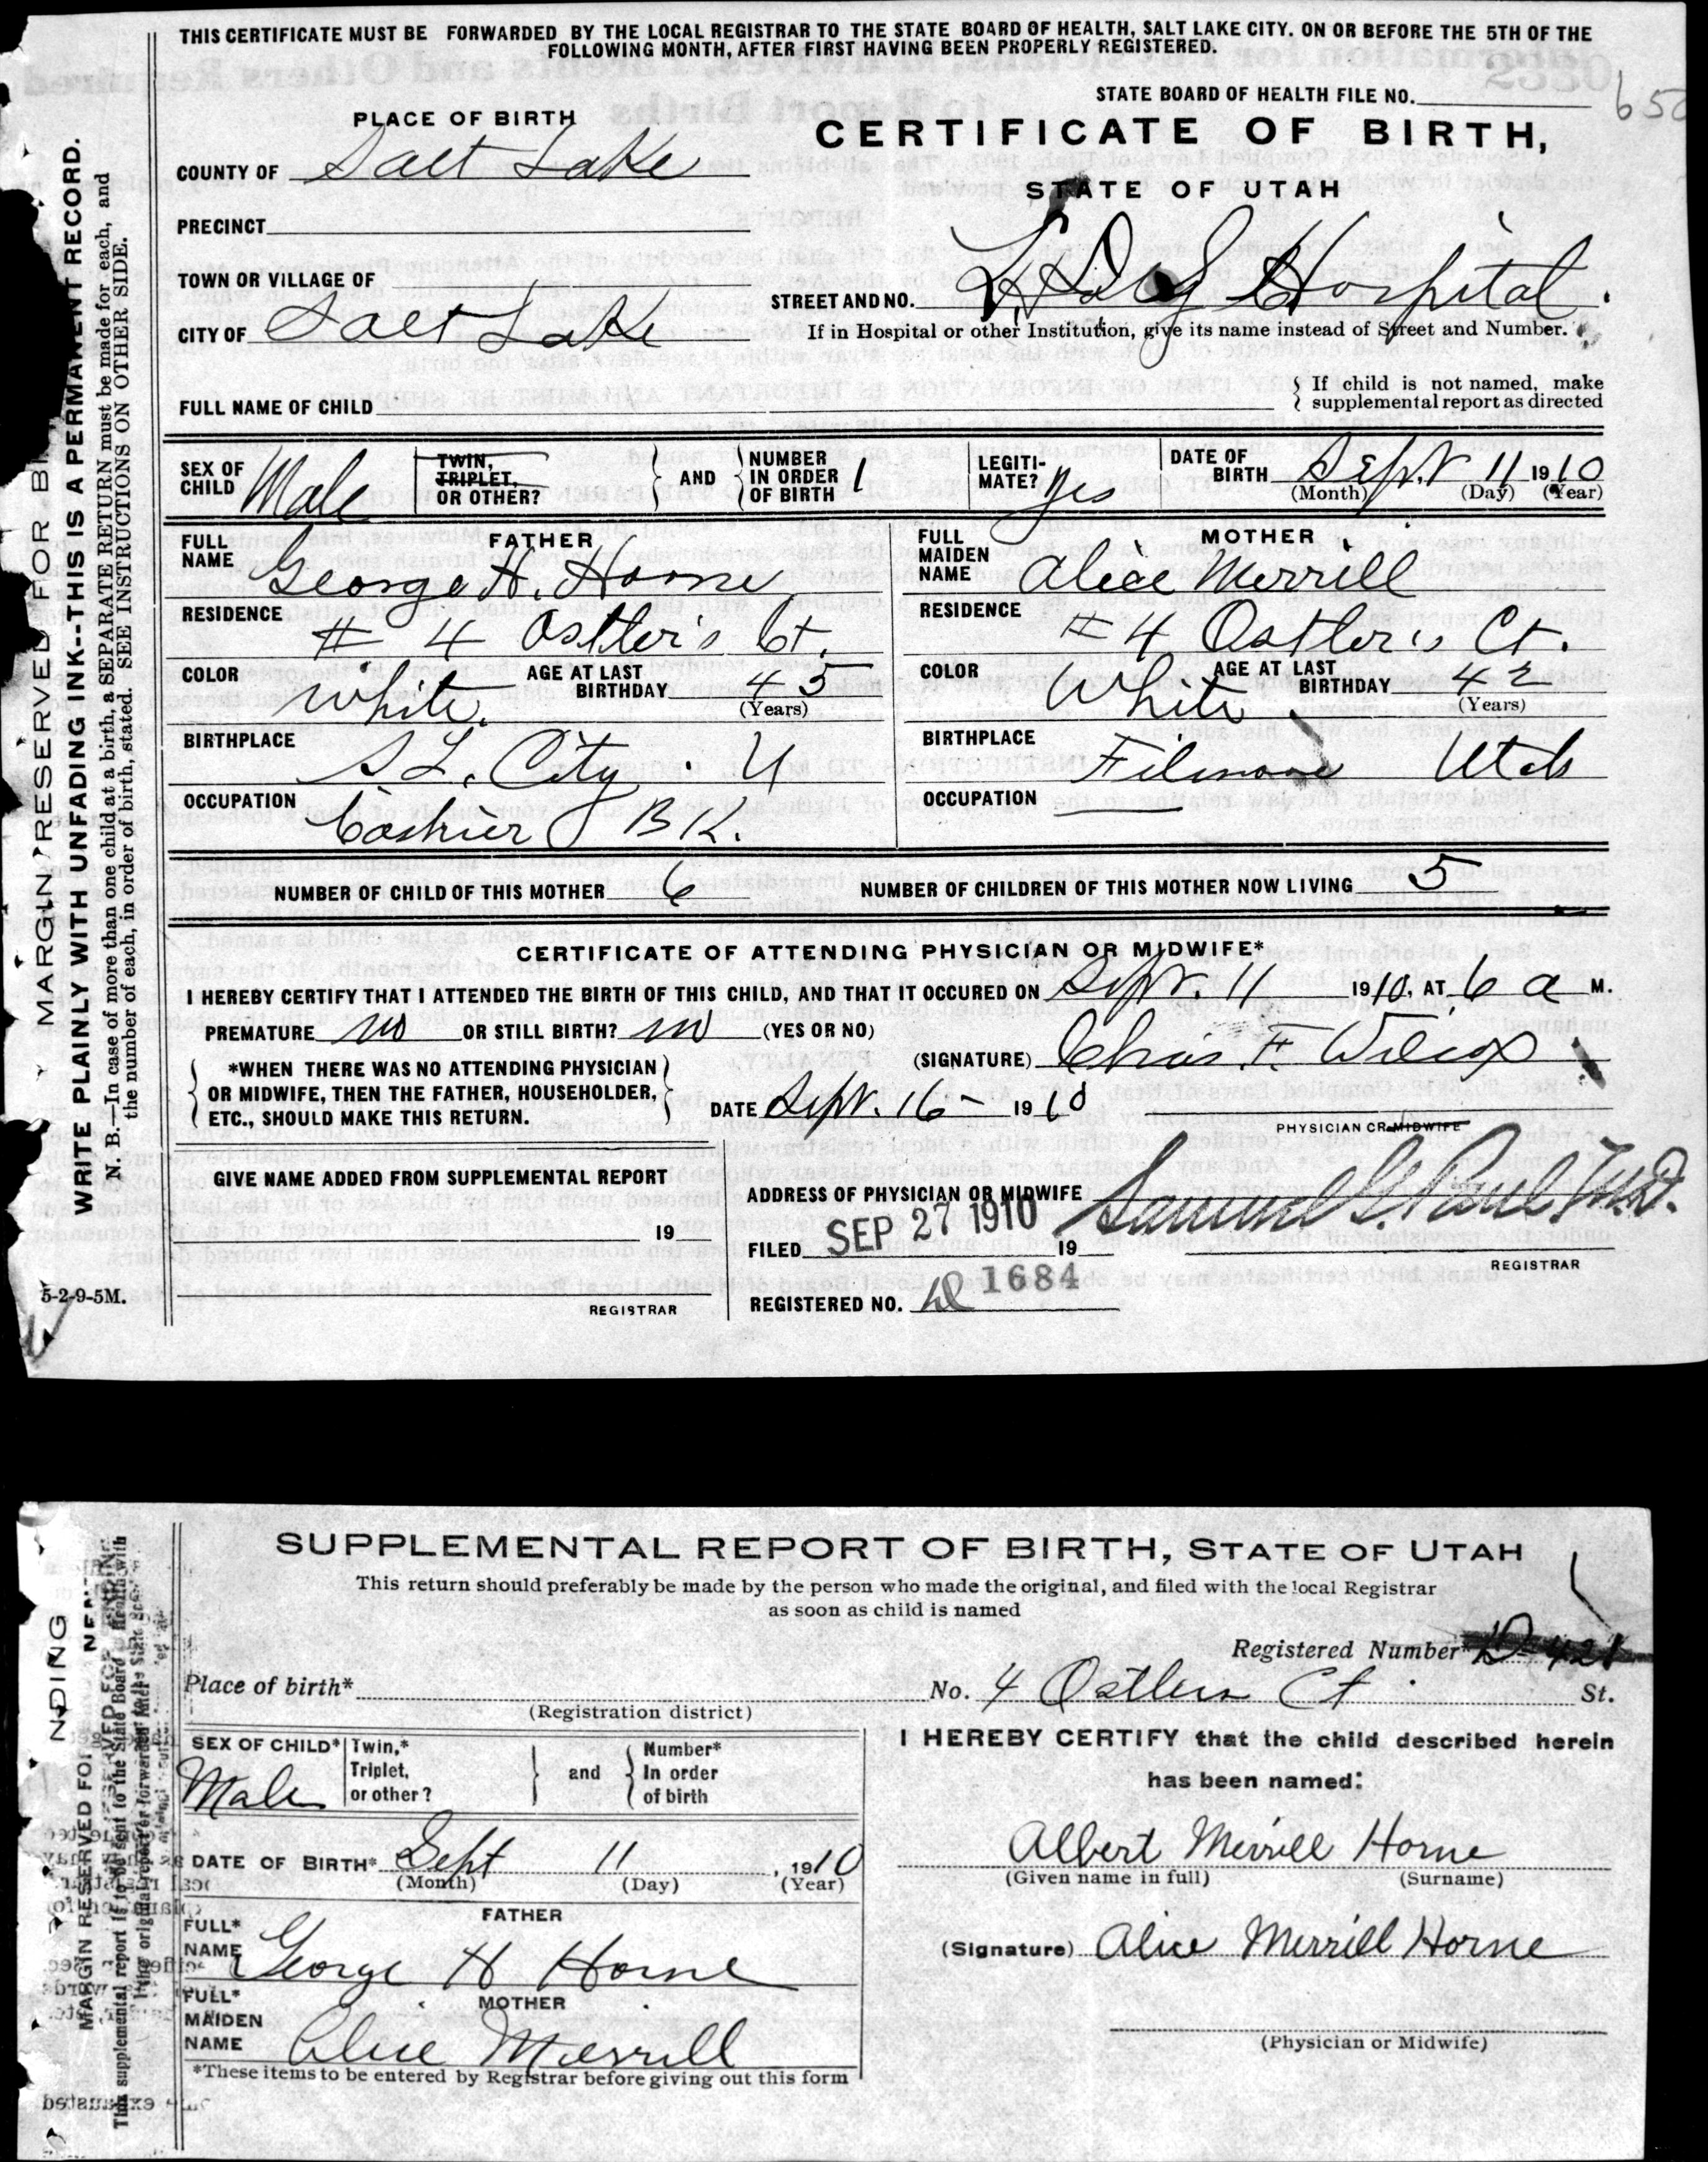 THIS CERTIFICATE MUST BE FORWARDED BY THE LOCAL REGISTRAR TO THE STATE BOARD OF HEALTH, SALT LAKE CITY. ON OR BEFORE THE 5TH OF THE
FOLLOWING MONTH, AFTER FIRST HAVING BEEN PROPERLY REGISTERED.
STATE BOARD OF HEALTH FILE NO.
PLACE OF BIRTH
CERTIFICATE OF BIRTH,
COUNTY OF Salt Lake
STATE OF UTAH
PRECINCT
TOWN OR VILLAGE OF
STREET AND NO. L.D.S Hospital.
CITY OF Salt Lake
If in Hospital or other Institution, give its name instead of Street and Number.
FULL NAME OF CHILD
If child is not named, make
supplemental report as directed
SEX OF CHILD Male
TWIN, TRIPLET, OR OTHER?
AND
NUMBER IN ORDER OF BIRTH 1
LEGITI-MATE? Yes
DATE OF BIRTH Sept. 11 1910
(Month) (Day) (Year)
FATHER
FULL NAME George H. Horne
RESIDENCE # 4 Ostler's Ct.
COLOR White.
AGE AT LAST BIRTHDAY 45
(Years)
BIRTHPLACE S L. City. U
OCCUPATION Cashier BK.
MOTHER
FULL MAIDEN NAME Alice Merrill
RESIDENCE # 4 Ostler's Ct.
COLOR White.
AGE AT LAST BIRTHDAY 42
(Years)
BIRTHPLACE Filmore Utah
OCCUPATION
NUMBER OF CHILD OF THIS MOTHER 6
NUMBER OF CHILDREN OF THIS MOTHER NOW LIVING 5
CERTIFICATE OF ATTENDING PHYSICIAN OR MIDWIFE*
I HEREBY CERTIFY THAT I ATTENDED THE BIRTH OF THIS CHILD, AND THAT IT OCCURED ON Sept. 11 1910, AT 6 a M.
PREMATURE no OR STILL BIRTH? no (YES OR NO)
(SIGNATURE) Chas. F. Wilcox
*WHEN THERE WAS NO ATTENDING PHYSICIAN
OR MIDWIFE, THEN THE FATHER, HOUSEHOLDER,
ETC., SHOULD MAKE THIS RETURN.
DATE Sept. 16- 1910
PHYSICIAN OR MIDWIFE
GIVE NAME ADDED FROM SUPPLEMENTAL REPORT
19
REGISTRAR
ADDRESS OF PHYSICIAN OR MIDWIFE
Samuel G. Paul M.D.
FILED SEP 27 1910 19
REGISTRAR
REGISTERED NO. 1684
5-2-9-5M.
MARGIN RESERVED FOR
WRITE PLAINLY WITH UNFADING INK--THIS IS A PERMANENT RECORD.
N. B.—In case of more than one child at a birth, a SEPARATE RETURN must be made for each, and
the number of each, in order of birth, stated. SEE INSTRUCTIONS ON OTHER SIDE.
SUPPLEMENTAL REPORT OF BIRTH, STATE OF UTAH
This return should preferably be made by the person who made the original, and filed with the local Registrar
as soon as child is named
Registered Number* D 421
Place of birth*
No. 4 Ostlers Ct. St.
(Registration district)
SEX OF CHILD* Male
Twin,* Triplet, or other?
and
Number* In order of birth
DATE OF BIRTH* Sept 11, 1910
(Month) (Day) (Year)
FATHER
FULL* NAME George H Horne
MOTHER
FULL* MAIDEN NAME Alice Merrill
*These items to be entered by Registrar before giving out this form
I HEREBY CERTIFY that the child described herein
has been named:
Albert Merrill Horne
(Given name in full) (Surname)
(Signature) Alice Merrill Horne
(Physician or Midwife)
MARGIN RESERVED FOR